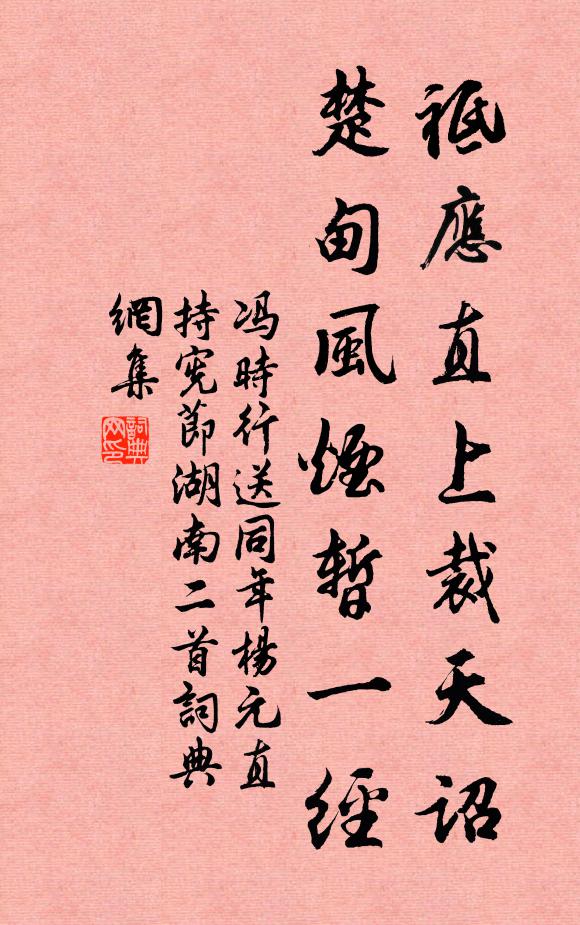 祗應直上裁天詔
楚甸風煙暫一經
冯時行送同年楊元直
持宪節湖南二首詞典
網集
詞典
网印